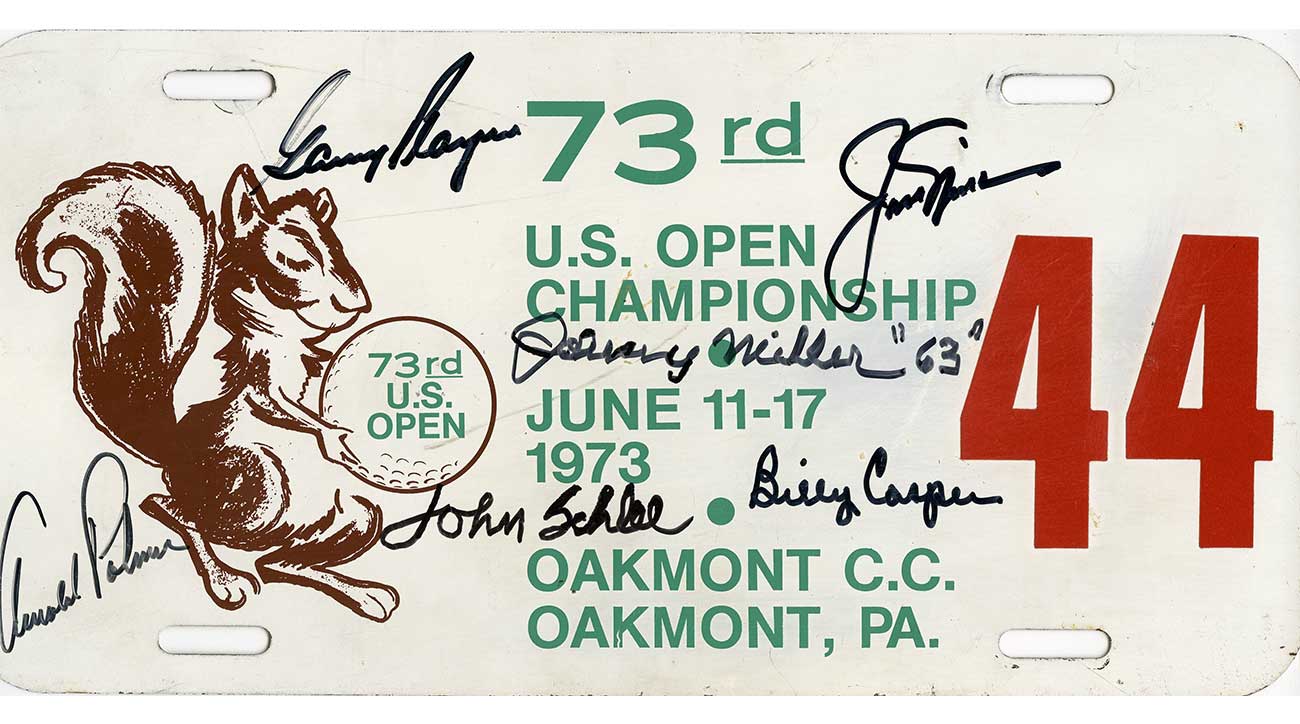 Gary Player
73rd
U.S. OPEN
CHAMPIONSHIP
Johnny Miller "63"
44
73rd
U.S.
OPEN
JUNE 11-17
1973
Billy Casper
John Schlee
Arnold Palmer
OAKMONT C.C.
OAKMONT, PA.